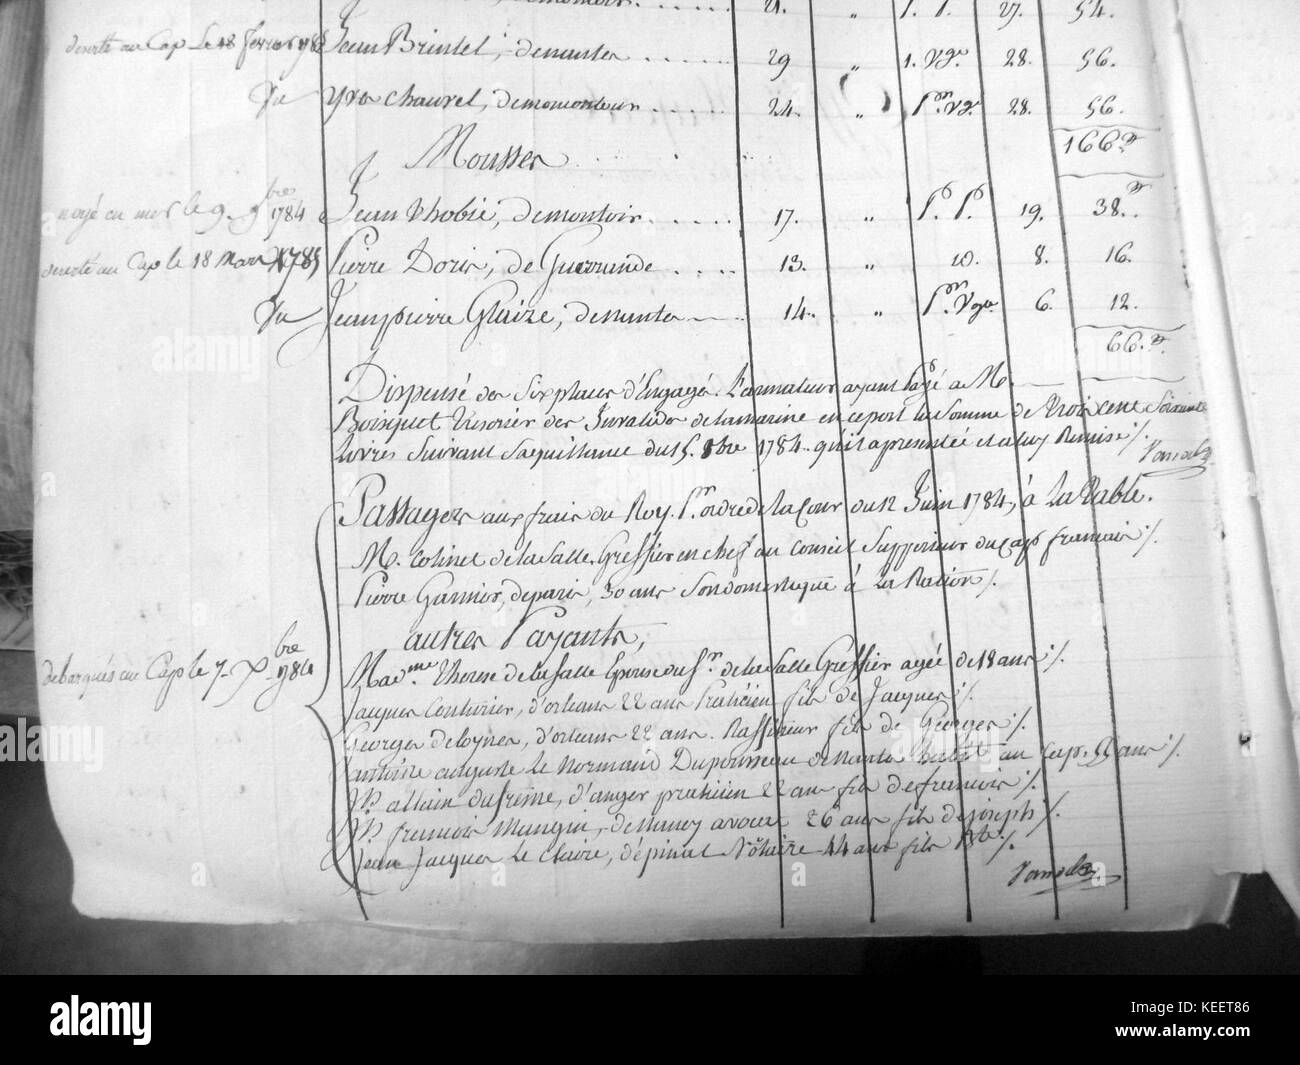 demontoir 21. " P. P. 27. 54.
deserté au Cap Le 18 fevrier 1785 Jean Brintel, denantes 29 " 1. Vge. 28. 56.
Vu Yves Chauvel, demontoir 24. " Pr. Vge 28. 56.
166.
Mousses
noyé en mer le 9. 9bre 1784 Jean Thobie, demontoir 17. " P. P. 19. 38.
deserté au Cap le 18 Mars 1785 Pierre Doris, de Guerrande 13. " id. 8. 16.
Vu Jean pierre Glaize, denantes 14. " Pr. Vge 6. 12.
66.
Dispensé des Six places d'Engagé. L'armateur ayant Payé a M.
Boisquet tresorier des Invalides de la marine en ce port la somme de trois cent Soixante
Livres Suivant Sa quittance du 15. 8bre 1784. qu'il a presentée et a luy Remise ./.
Passagers aux frais du Roy. Pr. ordre de la Cour du 12 Juin 1784, à La Table.
M. Colinet de la Salle, Greffier en chef au Conseil Supperieur du Cap francais ./.
Pierre Garnier, de paris, 30 ans Son domestique à La Ration ./.
autres Payants,
debarqués au Cap le 7. Xbre 1784 Madme. Therese de la Salle Epouse du Sr. de la Salle Greffier agée de 18 ans ./.
Jacques Couturier, d'orleans 22 ans Praticien fils de Jacques ./.
Georges deloynes, d'orleans 22 ans. Raffineur fils de Georges ./.
antoine auguste Le Normand Duponseau de Nantes habit au Cap. ans ./.
Jh. allain dufresne, d'anger praticien 22 ans fils de francois ./.
Jh. francois Mangin, de Nancy avocat 26 ans fils de joseph ./.
Jean Jacques Le Claire, d'épinal Notaire 44 ans fils ./.
alamy
alamy
Image ID: KEET86
www.alamy.com